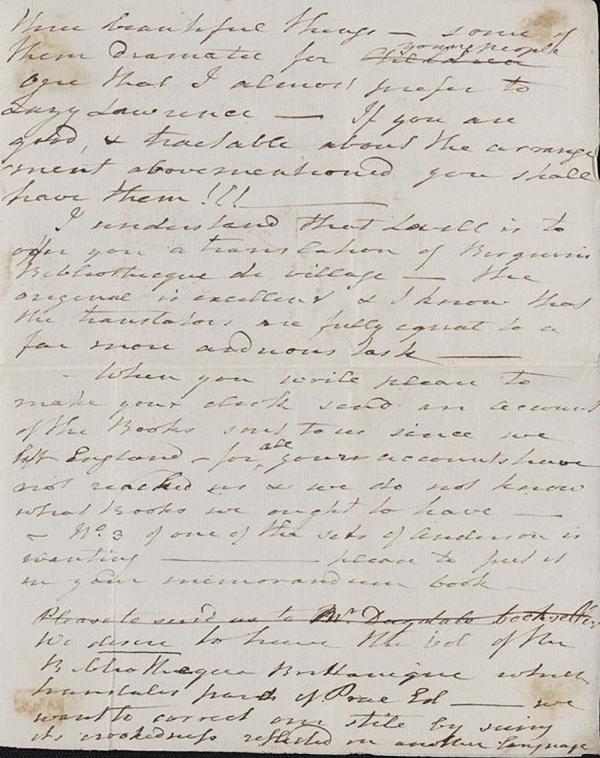 three beautiful things — some of
them dramatic for ~~Children~~ young people
age that I almost prefer to
Lazy Lawrence — If you are
good, & tractable about the arrange
ment abovementioned you shall
have them !!! —
I understand that Lovell is to
offer you a translation of Berquin's
Bibliotheque de village — the
original is excellent & I know that
the translators are fully equal to a
far more arduous task —
— When you write please to
make your clerk send an account
of the Books sent to us since we
left England — for all your accounts have
not reached us & we do not know
what Books we ought to have —
— No. 3 of one of the sets of Anderson is
wanting — please to put it
in your memorandum book
~~Please to send us to Mr. Dugdale bookseller~~
We desire to have the vol of the
Bibliotheque Britannique which
translates parts of Prac Ed — we
want to correct our stile by seeing
its crookedness reflected in another language